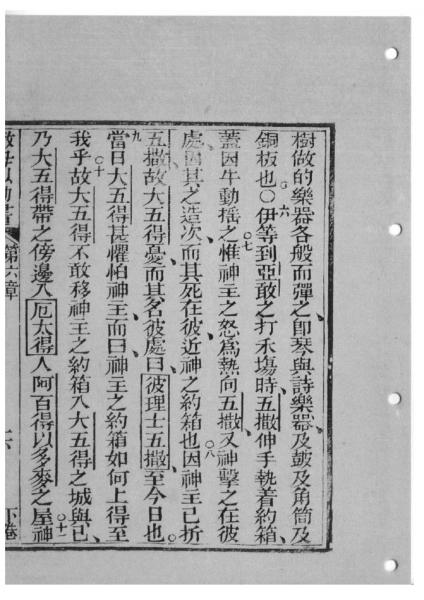 樹做的樂器各般而彈之卽琴與詩樂器及鼓及角筒及
銅板也○六伊等到亞敢之打禾塲時五撒伸手執着約箱
蓋因牛動搖之○七惟神主之怒爲熱向五撒又神擊之在彼
處因其之造次而其死在彼近神之約箱也○八因神主已折
五撒故大五得憂而其名彼處曰彼理士五撒至今日也○
九當日大五得甚懼怕神主而曰神主之約箱如何上得至
我乎○十故大五得不敢移神主之約箱入大五得之城與己
乃大五得帶之傍邊入厄太得人阿百得以多麥之屋○十一神
第六章
下卷